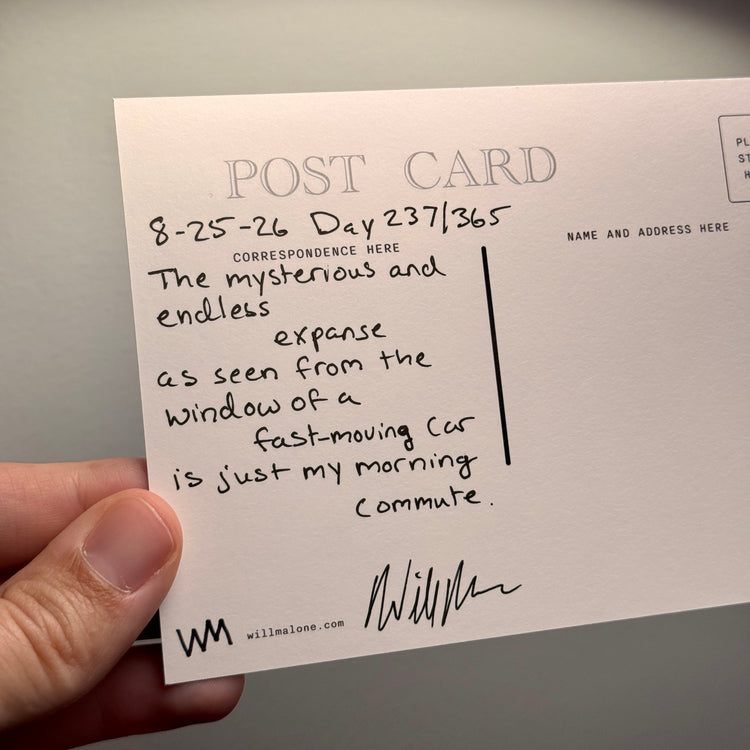 POST CARD
8-25-26 Day 237/365
CORRESPONDENCE HERE
The mysterious and
endless
expanse
as seen from the
window of a
fast-moving car
is just my morning
commute.
WM willmalone.com
NAME AND ADDRESS HERE